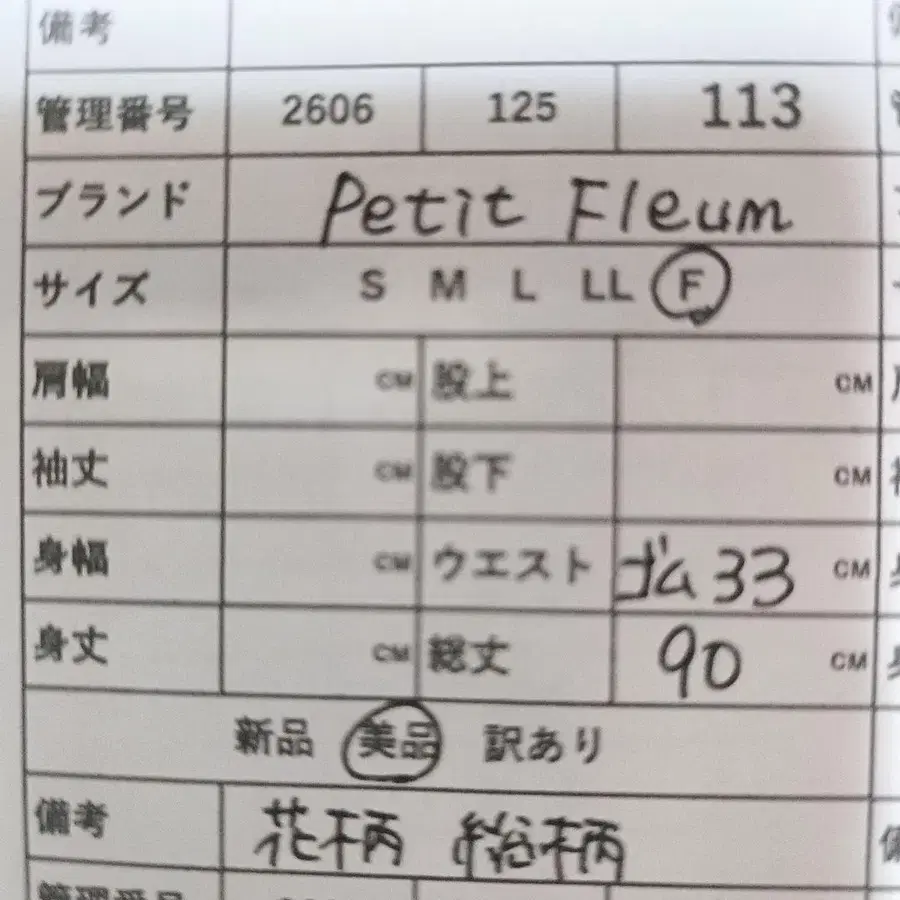 備考
管理番号 2606 125 113
ブランド Petit Fleum
サイズ S M L LL F
肩幅 CM 股上 CM
袖丈 CM 股下 CM
身幅 CM ウエスト ゴム33 CM
身丈 CM 総丈 90 CM
新品 美品 訳あり
備考 花柄 総柄
管理番号